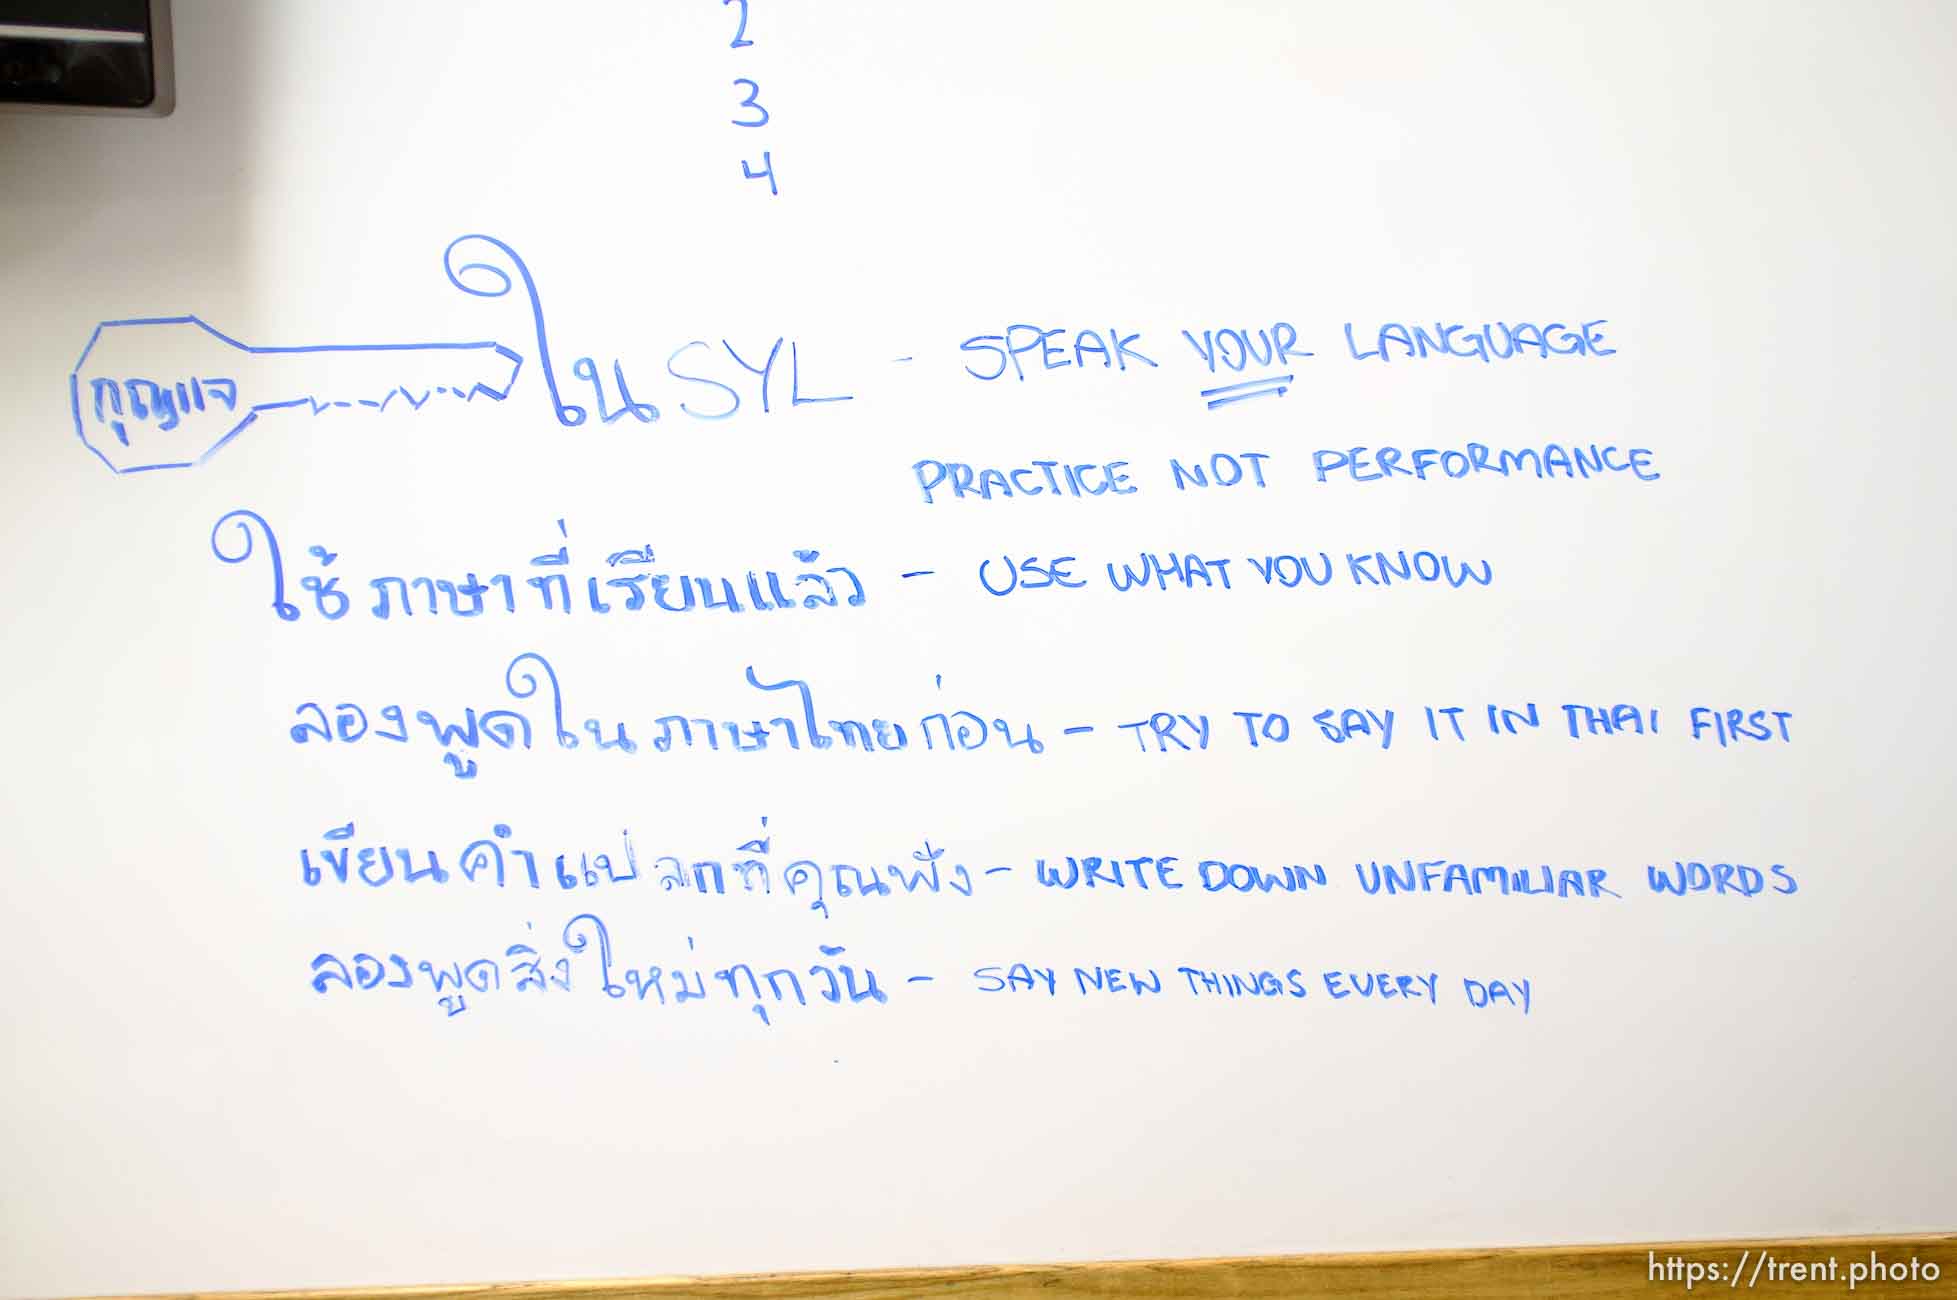 2
3
4
กุญแจ ใน SYL - SPEAK YOUR LANGUAGE
PRACTICE NOT PERFORMANCE
ใช้ภาษาที่เรียนแล้ว - USE WHAT YOU KNOW
ลองพูดในภาษาไทยก่อน - TRY TO SAY IT IN THAI FIRST
เขียนคำแปลกที่คุณฟัง - WRITE DOWN UNFAMILIAR WORDS
ลองพูดสิ่งใหม่ทุกวัน - SAY NEW THINGS EVERY DAY
https://trent.photo